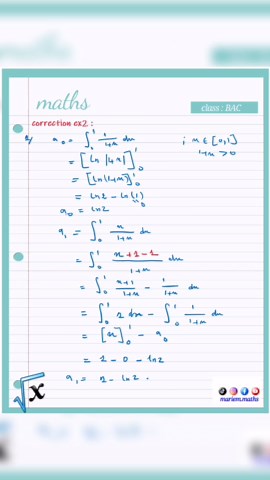 maths
class : BAC
correction ex2 :
1) a₀ = ∫₀¹ 1/(1+x) dx ; x ∈ [0,1] 1+x > 0
= [ln |1+x|]₀¹
= [ln(1+x)]₀¹
= ln2 - ln(1) 0
a₀ = ln2
a₁ = ∫₀¹ x/(1+x) dx
= ∫₀¹ (x+1-1)/(1+x) dx
= ∫₀¹ (x+1)/(1+x) - 1/(1+x) dx
= ∫₀¹ 1 dx - ∫₀¹ 1/(1+x) dx
= [x]₀¹ - a₀
= 1 - 0 - ln2
a₁ = 1 - ln2 .
√x
mariem.maths